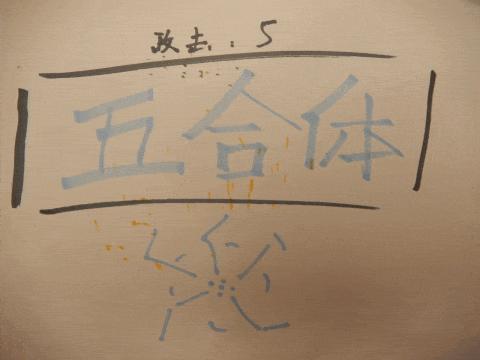 攻击：5
五合体